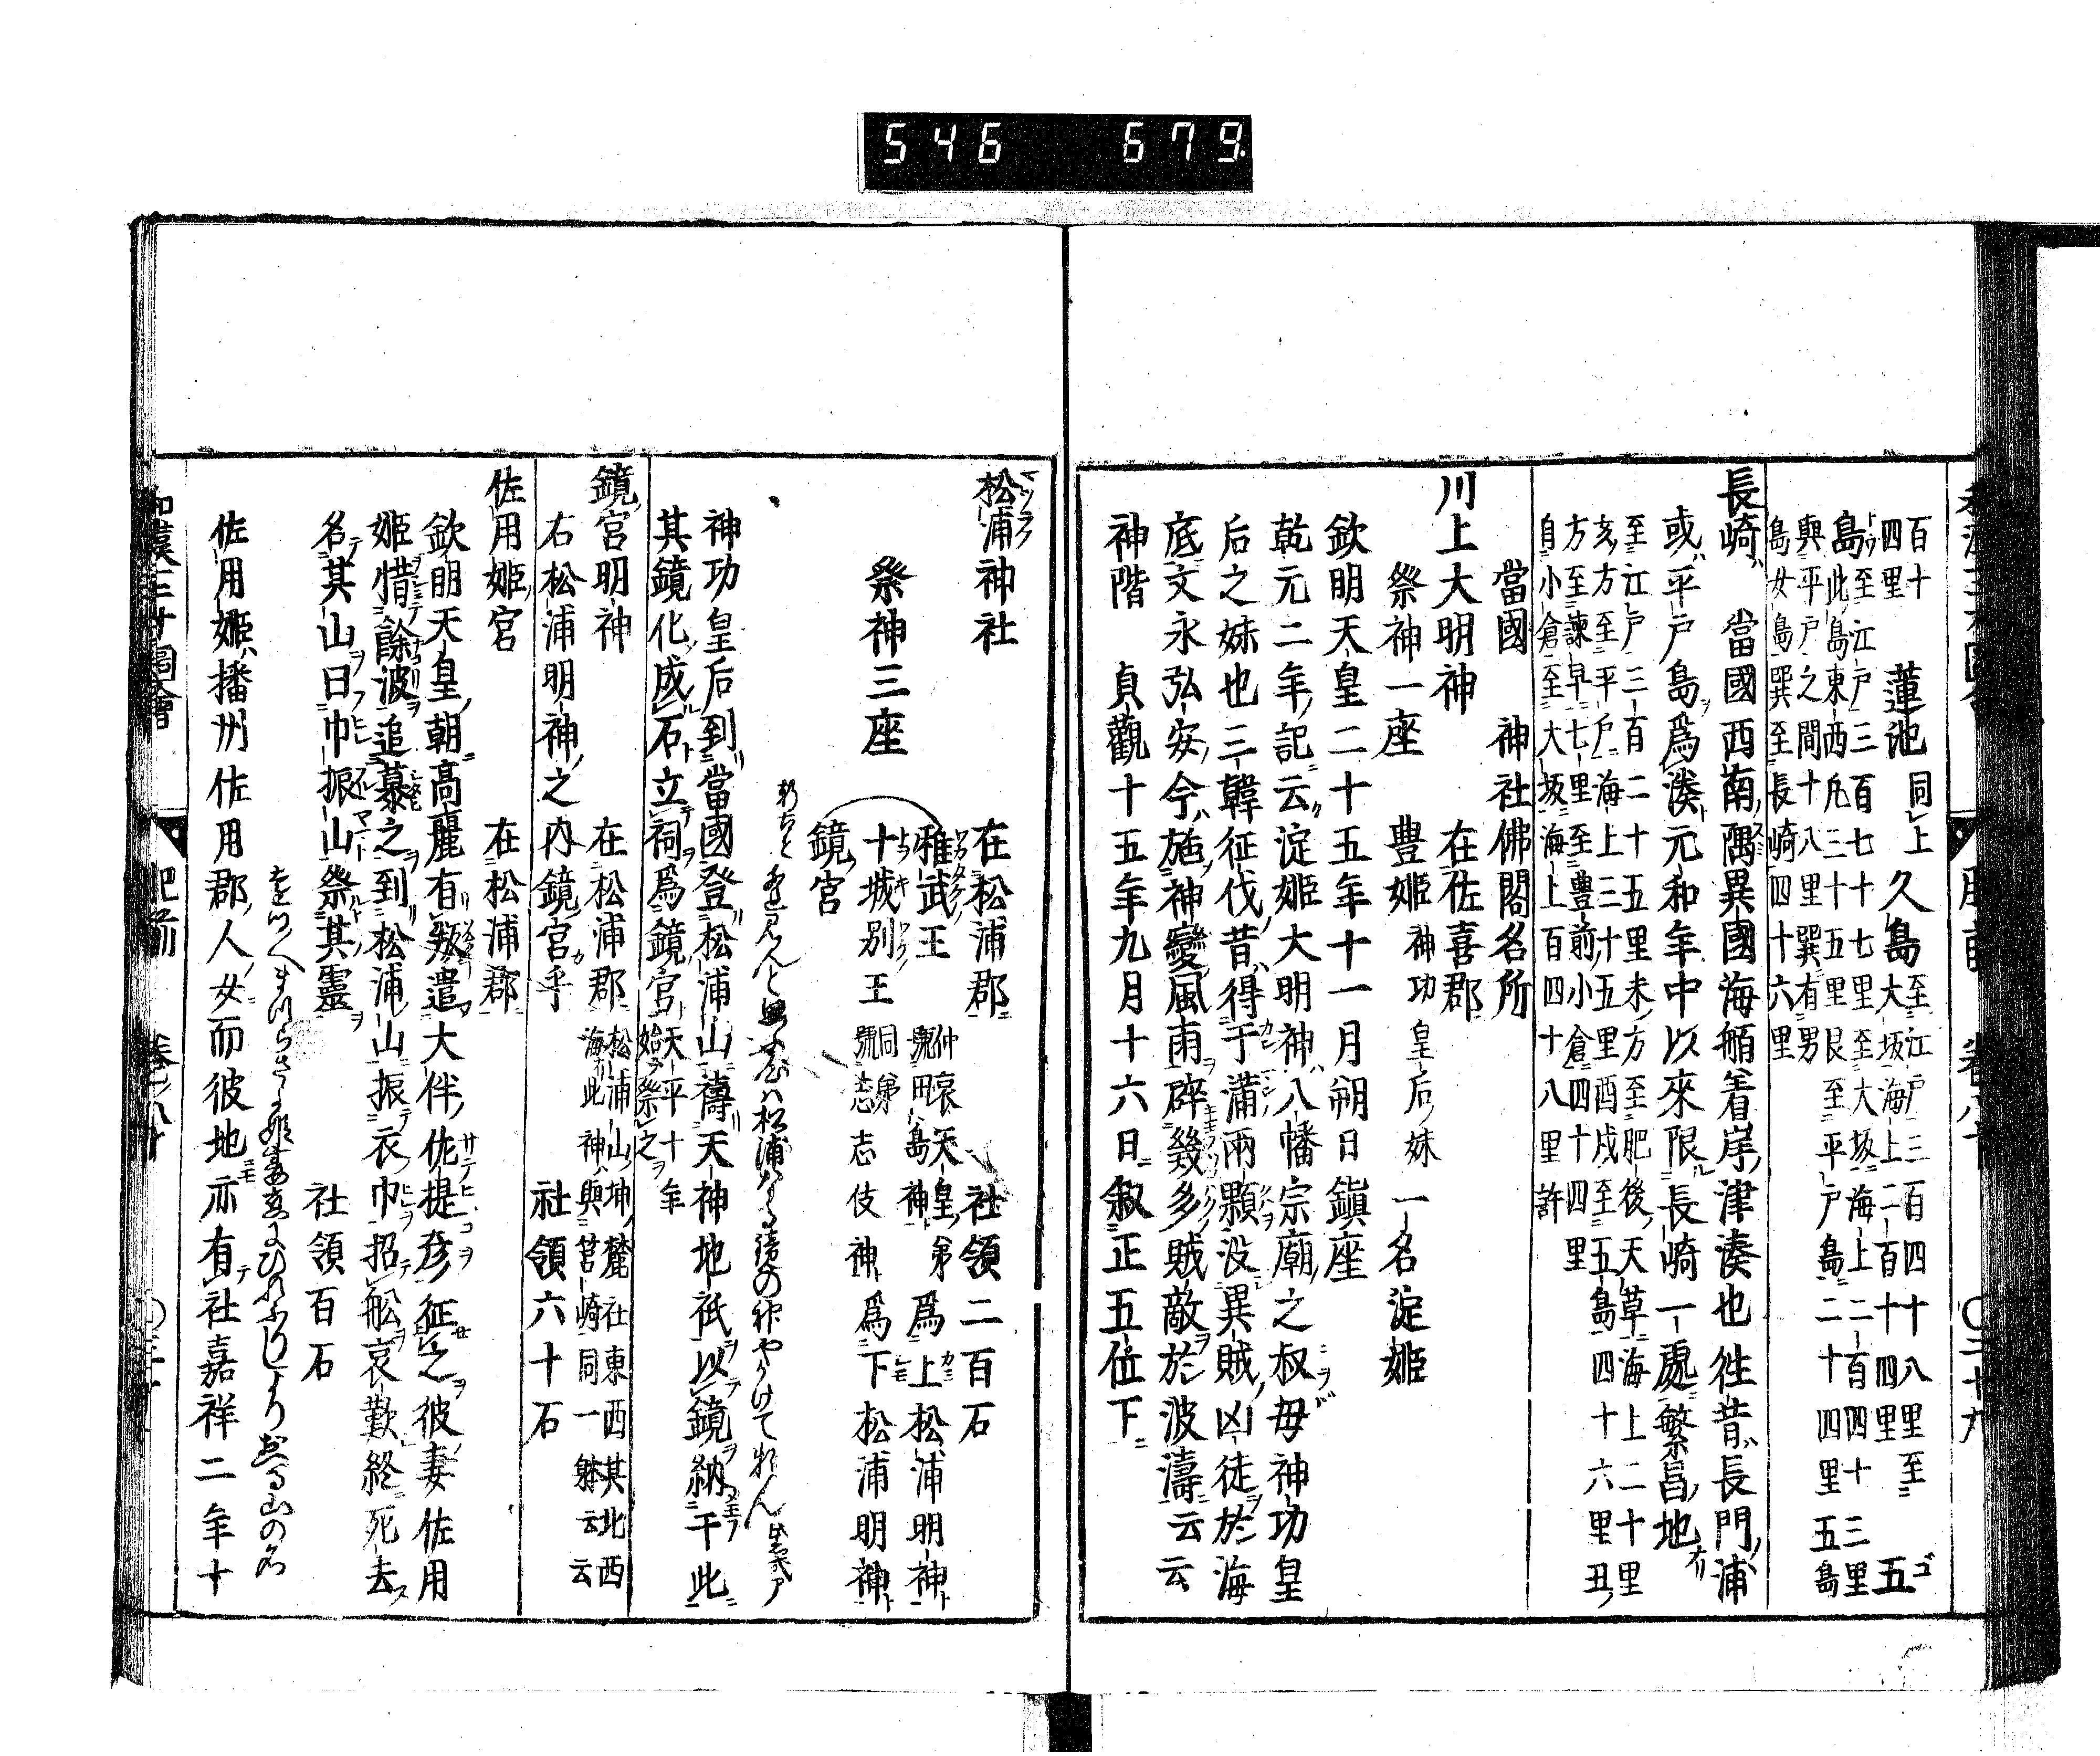 546 679
百十四里
蓮池 同上
久島 至江戸三百四十八里至大坂海上二百十四里
五島 至江戸三百七十七里至大坂海上二百四十三里
此島東西凡三十五里艮至平戸島二十四里五島
與平戸之間十八里巽有男
島女島巽至長崎四十六里
長崎 當國西南隅異國海舶着岸津湊也往昔長門浦
或平戸島爲湊元和年中以來限長崎一處繁昌地
至江戸三百二十五里未方至肥後天草海上二十里
亥方至平戸海上三十五里酉戌至五島四十六里丑
方至諫早七里至豊前小倉四十四里
自小倉至大坂海上百四十八里許
當國 神社佛閣名所
川上大明神 在佐喜郡
祭神一座 豊姫 神功皇后妹 一名淀姫
欽明天皇二十五年十一月朔日鎮座
乾元二年記云淀姫大明神八幡宗廟之叔母神功皇
后之妹也三韓征伐昔得干蒲兩顆没異賊凶徒於海
底文永弘安今施神變風雨碎幾多賊敵於波濤云云
神階 貞觀十五年九月十六日叙正五位下
松浦神社 在松浦郡 社領二百石
祭神三座
雅武王 仲哀天皇弟 號田島神 爲上松浦明神
十城別王 同弟 號志志伎神 爲下松浦明神
鏡宮
神功皇后到當國登松浦山禱天神地祇以鏡納干此
其鏡化成石立祠爲鏡宮 天平十年始祭之
鏡宮明神 在松浦郡 松浦山坤麓社東西其北西海此神與筥崎同一躰云云
右松浦明神之内鏡宮乎 社領六十石
佐用姫宮 在松浦郡
欽明天皇朝高麗有叛遣大伴佐提彦征之彼妻佐用
姫惜餘波追慕之到松浦山振衣巾招舩哀歎終死去
名其山曰巾振山祭其靈 社領百石
佐用姫播州佐用郡人女而彼地亦有社嘉祥二年十
和漢三才圖會 肥前 卷八十